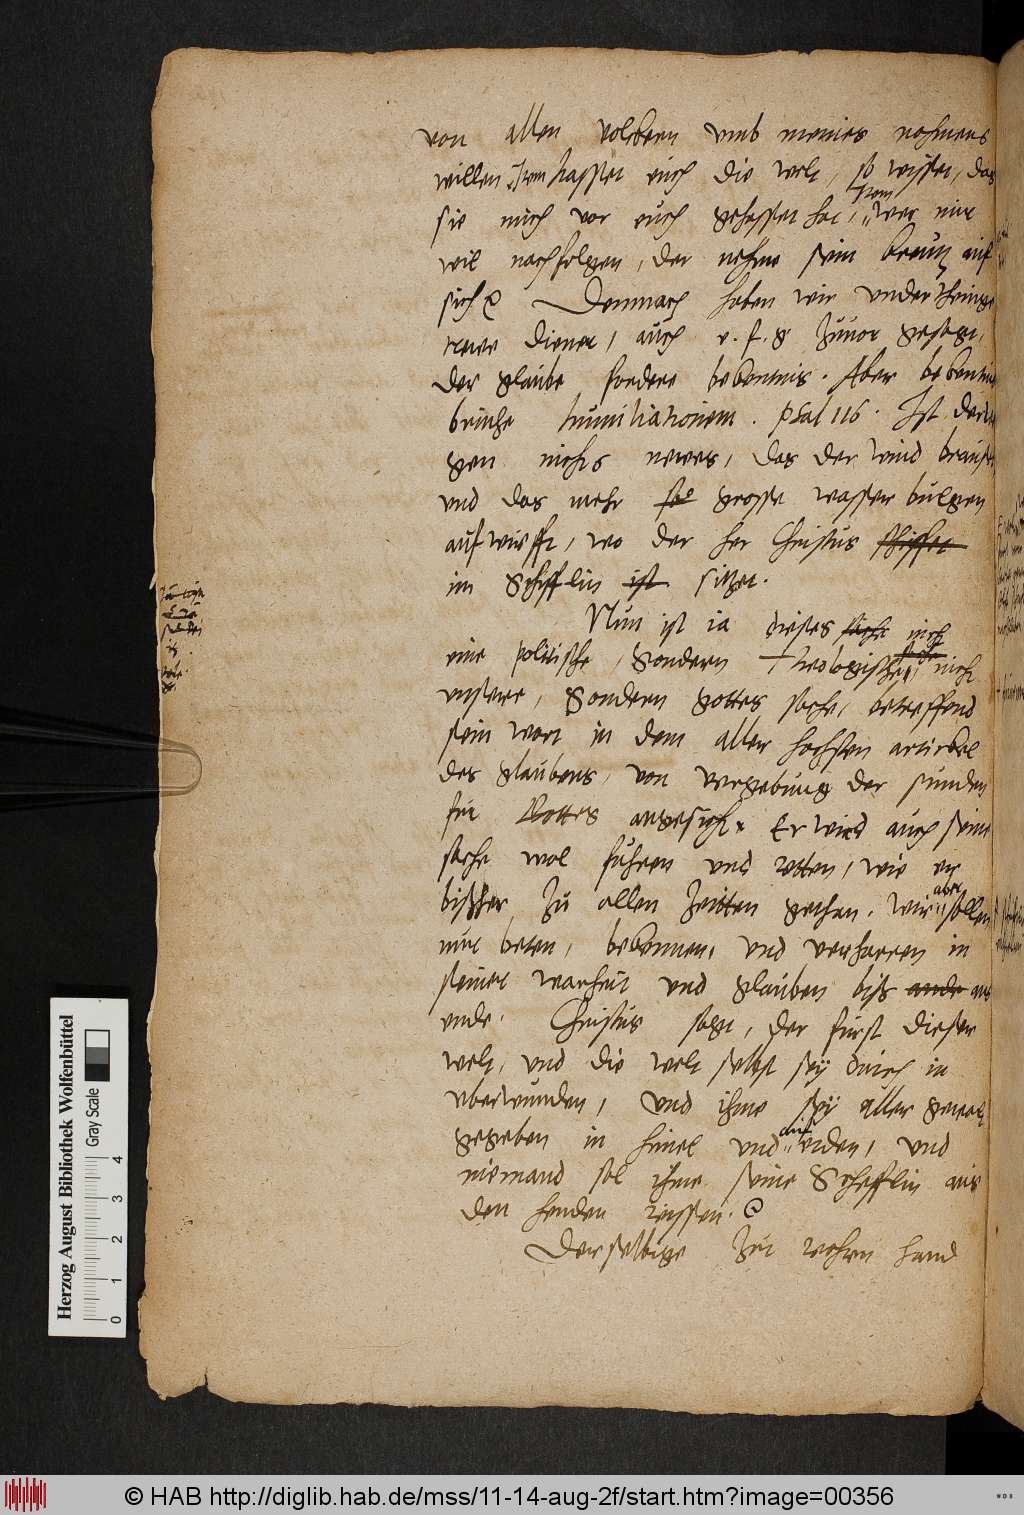 von allen volckern umb meines nahmens
willen, Item hasset euch die welt, so wisset, das
sie mich vor euch gehasset hat, Item wer mir
wil nachfolgen, der nehme sein kreutz auf
sich Demnach haben wir underthenige
trewe diener, auch e. f. g zuvor gesagt,
der glaube fordere bekentnis. Aber bekentnis
bringe humiliationem. Psal 116. Ist derhal
gen nichts newes, das der wind brauset
und das mehr so grosse wasser bulgen
aufwirfft, wo der her Christus schiffet
im Schifflin ist sitzet.
Nun ist ia dieses sache nich
eine politische, Sondern Theologische, nicht
unsere, Sondern gottes sache, betreffend
sein wort in dem aller hochsten artickel
des glaubens, von vergebung der sunden
für Gottes angesicht. Er wird auch seine
sache wol führen und retten, wie er
bishher zu allen zeitten gethan. Wir aber sollen
nur beten, bekennen, und verharren in
seiner warheit und glauben biß ande ans
ende. Christus sagt, der fürst dieser
welt, und die welt selbst sey durch in
uberwunden, und ihme sey aller gewalt
gegeben in himel und auf erden, und
niemand sol ihme seine Schefflin aus
den henden reissen.
Derselbige zur rechten hand
Herzog August Bibliothek Wolfenbüttel
Gray Scale
0 1 2 3 4
© HAB http://diglib.hab.de/mss/11-14-aug-2f/start.htm?image=00356